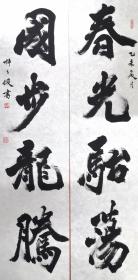 春光駘蕩
國步龍騰
乙未夏月